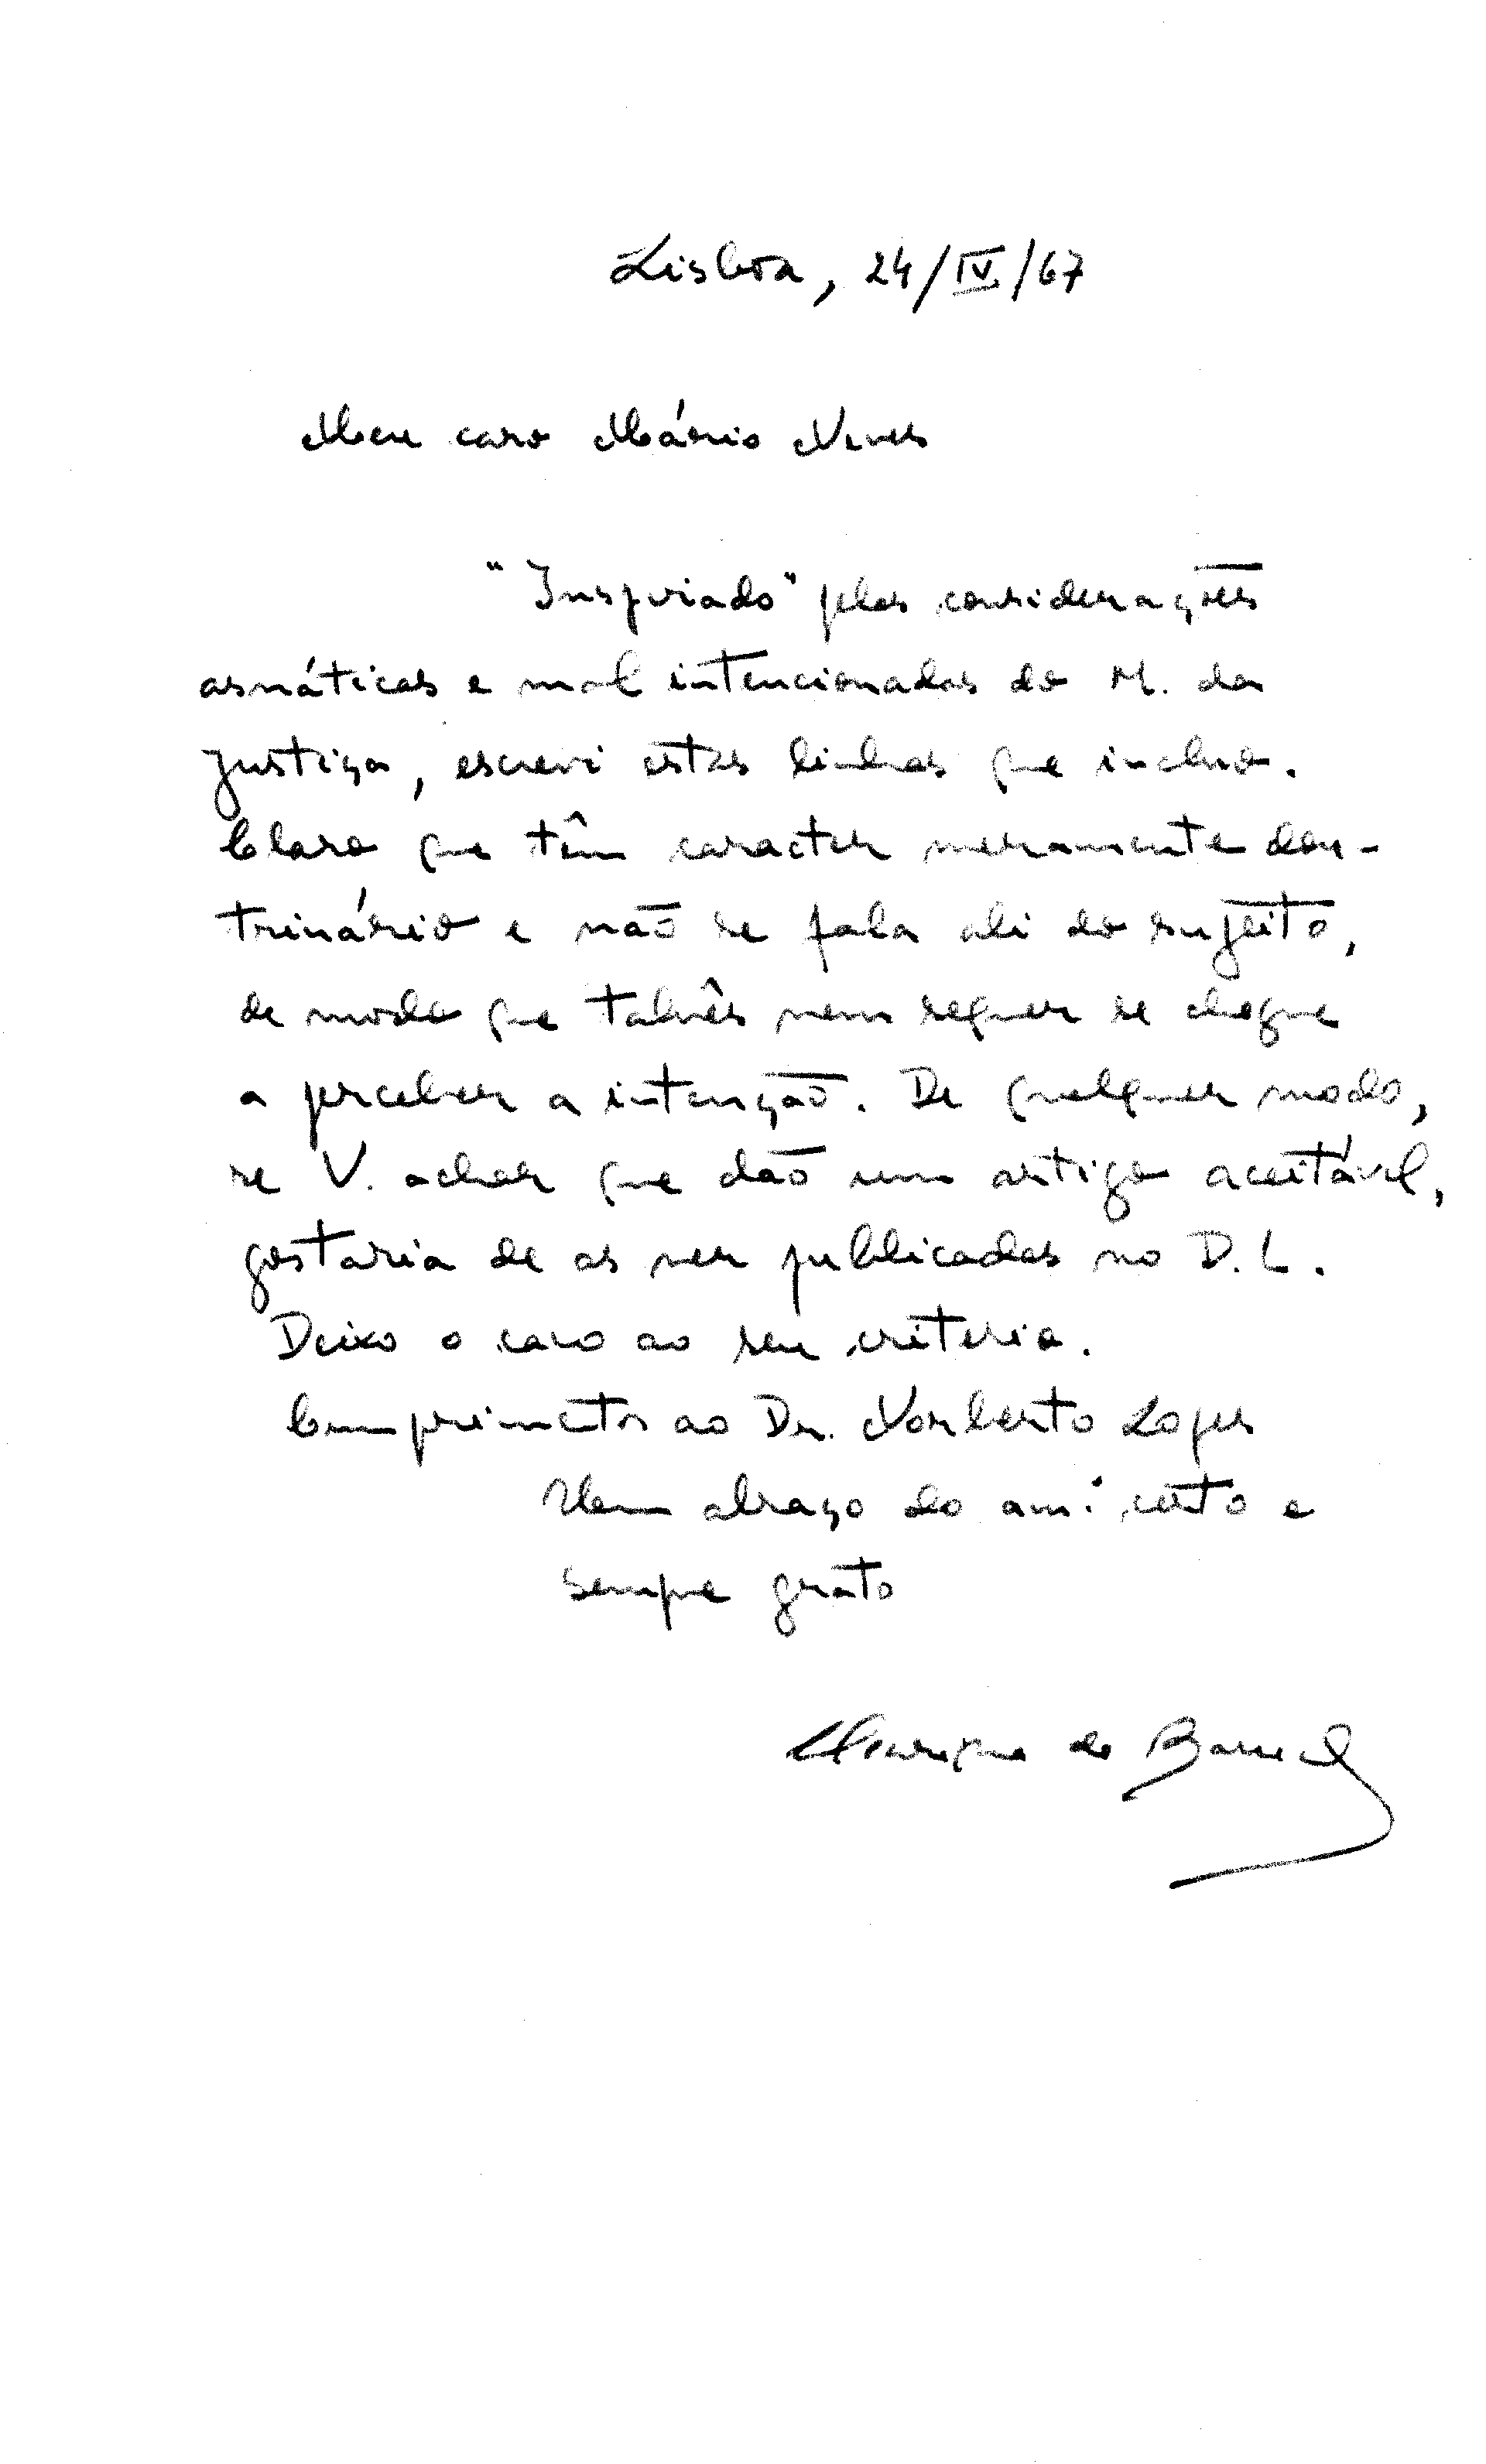 Lisboa, 24/IV/67
Meu caro Mário Neves
"Inspirado" pelas considerações
asnáticas e mal intencionadas do M. da
Justiça, escrevi estas linhas que incluo.
Claro que têm caracter meramente dou-
trinário e não se fala ali do sujeito,
de modo que talvês nem sequer se chegue
a perceber a intenção. De qualquer modo,
se V. achar que dão um artigo aceitável,
gostaria de as ver publicadas no D. L.
Deixo o caso ao seu criterio.
Cumprimetos ao Dr. Norberto Lopes
Um abraço do am.º certo e
sempre grato
Henrique de Barros